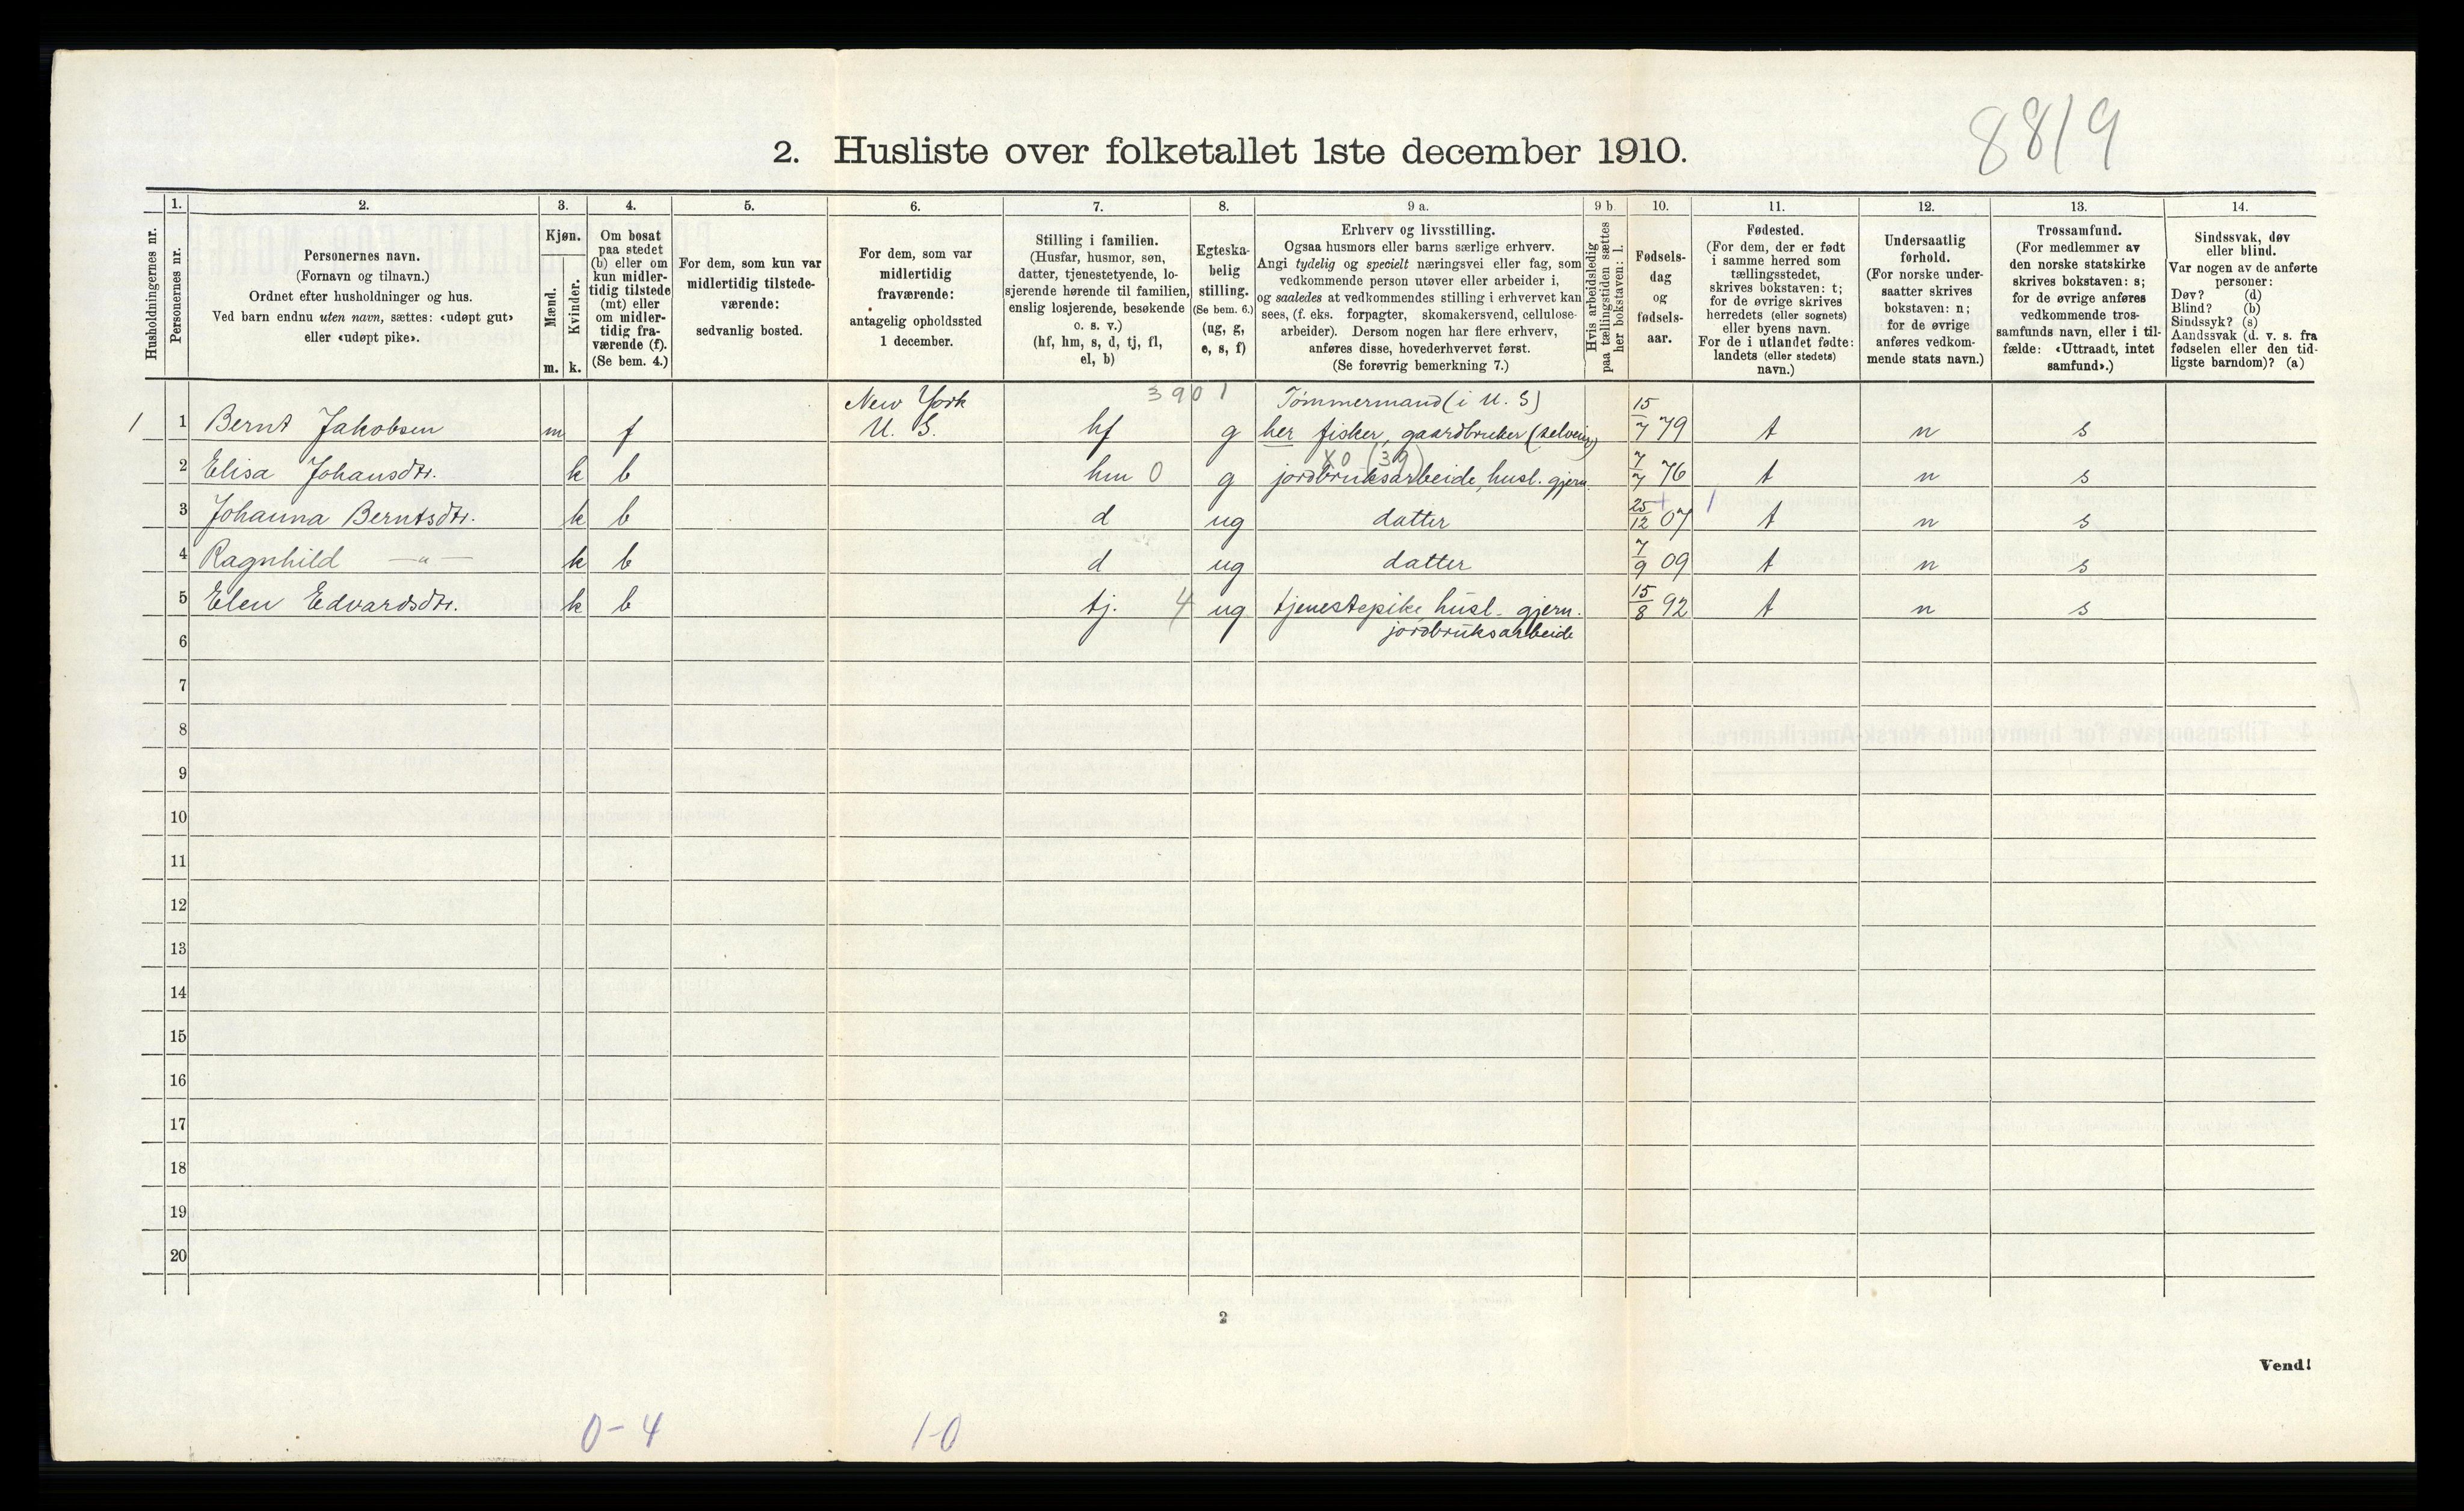 8819
2. Husliste over folketallet 1ste december 1910.
Husholdningernes nr.
1. Personernes nr.
2. Personernes navn.
(Fornavn og tilnavn.)
Ordnet efter husholdninger og hus.
Ved barn endnu uten navn, sættes: «udøpt gut»
eller «udøpt pike».
3. Kjøn.
Mænd. Kvinder.
m. k.
4. Om bosat
paa stedet
(b) eller om
kun midler-
tidig tilstede
(mt) eller
om midler-
tidig fra-
værende (f).
(Se bem. 4.)
5. For dem, som kun var
midlertidig tilstede-
værende:
sedvanlig bosted.
6. For dem, som var
midlertidig
fraværende:
antagelig opholdssted
1 december.
7. Stilling i familien.
(Husfar, husmor, søn,
datter, tjenestetyende, lo-
sjerende hørende til familien,
enslig losjerende, besøkende
o. s. v.)
(hf, hm, s, d, tj, fl,
el, b)
8. Egteska-
belig
stilling.
(Se bem. 6.)
(ug, g,
e, s, f)
9 a. Erhverv og livsstilling.
Ogsaa husmors eller barns særlige erhverv.
Angi tydelig og specielt næringsvei eller fag, som
vedkommende person utøver eller arbeider i,
og saaledes at vedkommendes stilling i erhvervet kan
sees, (f. eks. forpagter, skomakersvend, cellulose-
arbeider). Dersom nogen har flere erhverv,
anføres disse, hovederhvervet først.
(Se forøvrig bemerkning 7.)
9 b. Hvis arbeidsledig
paa tællingstiden sættes
her bokstaven: l.
10. Fødsels-
dag
og
fødsels-
aar.
11. Fødested.
(For dem, der er født
i samme herred som
tællingsstedet,
skrives bokstaven: t;
for de øvrige skrives
herredets (eller sognets)
eller byens navn.
For de i utlandet fødte:
landets (eller stedets)
navn.)
12. Undersaatlig
forhold.
(For norske under-
saatter skrives
bokstaven: n;
for de øvrige
anføres vedkom-
mende stats navn.)
13. Trossamfund.
(For medlemmer av
den norske statskirke
skrives bokstaven: s;
for de øvrige anføres
vedkommende tros-
samfunds navn, eller i til-
fælde: «Uttraadt, intet
samfund».)
14. Sindssvak, døv
eller blind.
Var nogen av de anførte
personer:
Døv? (d)
Blind? (b)
Sindssyk? (s)
Aandssvak (d. v. s. fra
fødselen eller den tid-
ligste barndom)? (a)
New York 3901 Tømmermand (i U. S)
1 1 Bernt Jakobsen m f U. S. hf g her fisker, gaardbruker (selveier) 15/7 79 t n s
X0 (39)
2 Elisa Johansdtr. k b hm 0 g jordbruksarbeide, husl. gjern. 7/7 76 t n s
3 Johanna Berntsdtr. k b d ug datter 25/12 07 t n s
4 Ragnhild —"— k b d ug datter 7/9 09 t n s
5 Elen Edvardsdtr. k b tj. 4 ug tjenestepike, husl. gjern. 15/8 92 t n s
6 jordbruksarbeide
7
8
9
10
11
12
13
14
15
16
17
18
19
20
2
Vend!
0-4 1-0